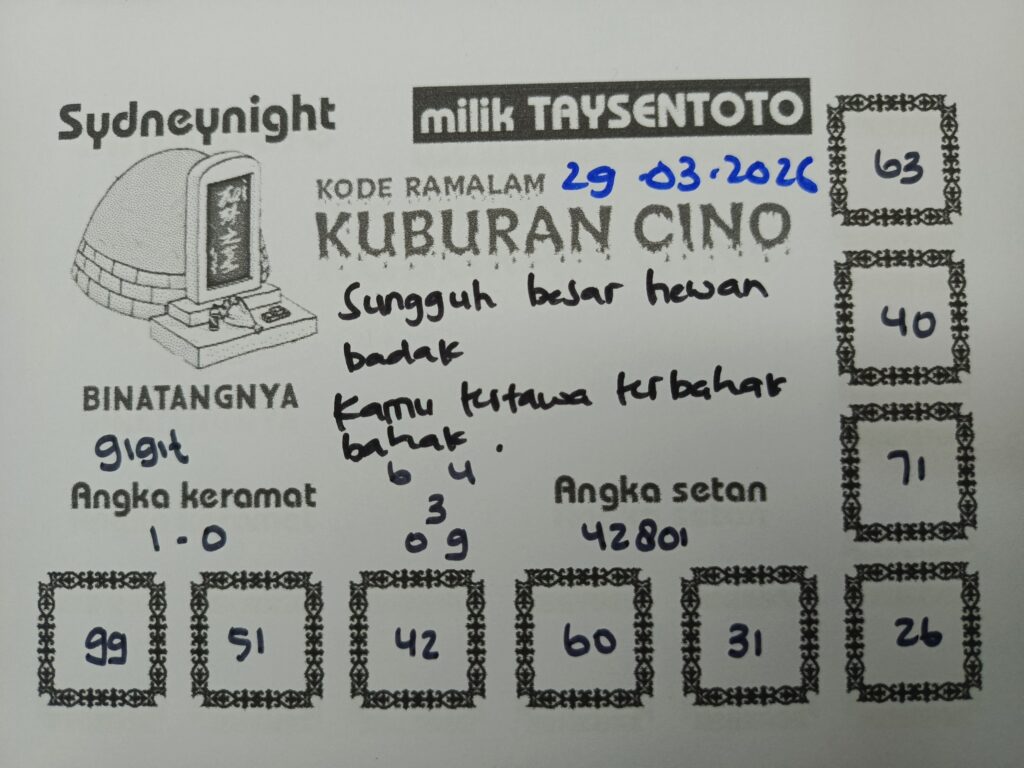 Sydneynight
milik TAYSENTOTO
KODE RAMALAM 29.03.2026
KUBURAN CINO
Sungguh besar hewan
badak
Kamu tertawa terbahak
bahak.
BINATANGNYA
gigit
Angka keramat
1-0
6 4
3
0 9
Angka setan
42801
63
40
71
99 51 42 60 31 26